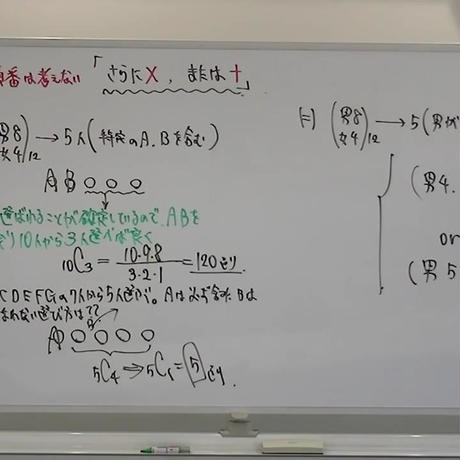 順番は考えない 「さらに×, または+」
(男8 女4)/12 → 5人(特定のA.Bを含む)
A B ○ ○ ○
選ばれることが確定しているので、ABを
10人から3人選べば良く
10C3 = 10·9·8 / 3·2·1 = 120通り
CDEFGの7人から5人選ぶ。Aは必ず含みBは
選ばれない選び方は??
A ○ ○ ○ ○
5C4 ⇒ 5C1 = 5通り.
(=) (男8 女4)/12 → 5(男が
(男4.
or
(男5